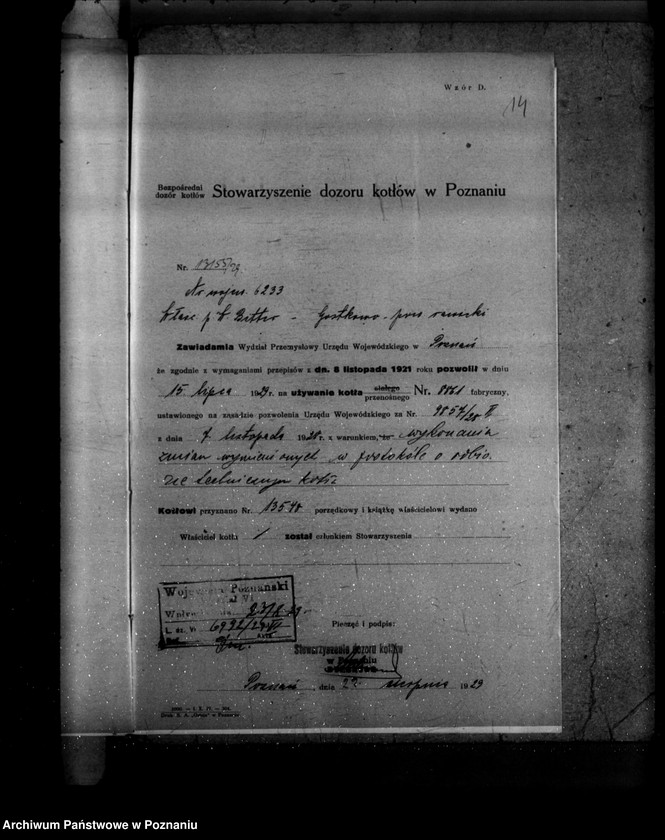 Wzór D.
14
Bezpośredni
dozór kotłów
Stowarzyszenie dozoru kotłów w Poznaniu
Nr. 13155/29
Nr wojew. 6233
Właśc. p. Bitter – Gostkowo – pow. rawicki
Zawiadamia Wydział Przemysłowy Urzędu Wojewódzkiego w Poznań
że zgodnie z wymaganiami przepisów z dn. 8 listopada 1921 roku pozwolił w dniu
15. lipca 1929 r. na używanie kotła stałego przenośnego Nr. 8861 fabryczny,
ustawionego na zasadzie pozwolenia Urzędu Wojewódzkiego za Nr. 9857/28 II
z dnia 7 listopada 1928 r. z warunkiem, że wykonania
zmian wymienionych w protokóle o odbio
rze technicznym kotła
Kotłowi przyznano Nr. 13540 porządkowy i książkę właścicielowi wydano
Właściciel kotła / został członkiem Stowarzyszenia
Województwo Poznański
L. dz. VI 6992/29 VI
Pieczęć i podpis:
Stowarzyszenie dozoru kotłów
w Poznaniu
Poznań, dnia 22 sierpnia 1929
Druk. S. A. w Poznaniu
Archiwum Państwowe w Poznaniu